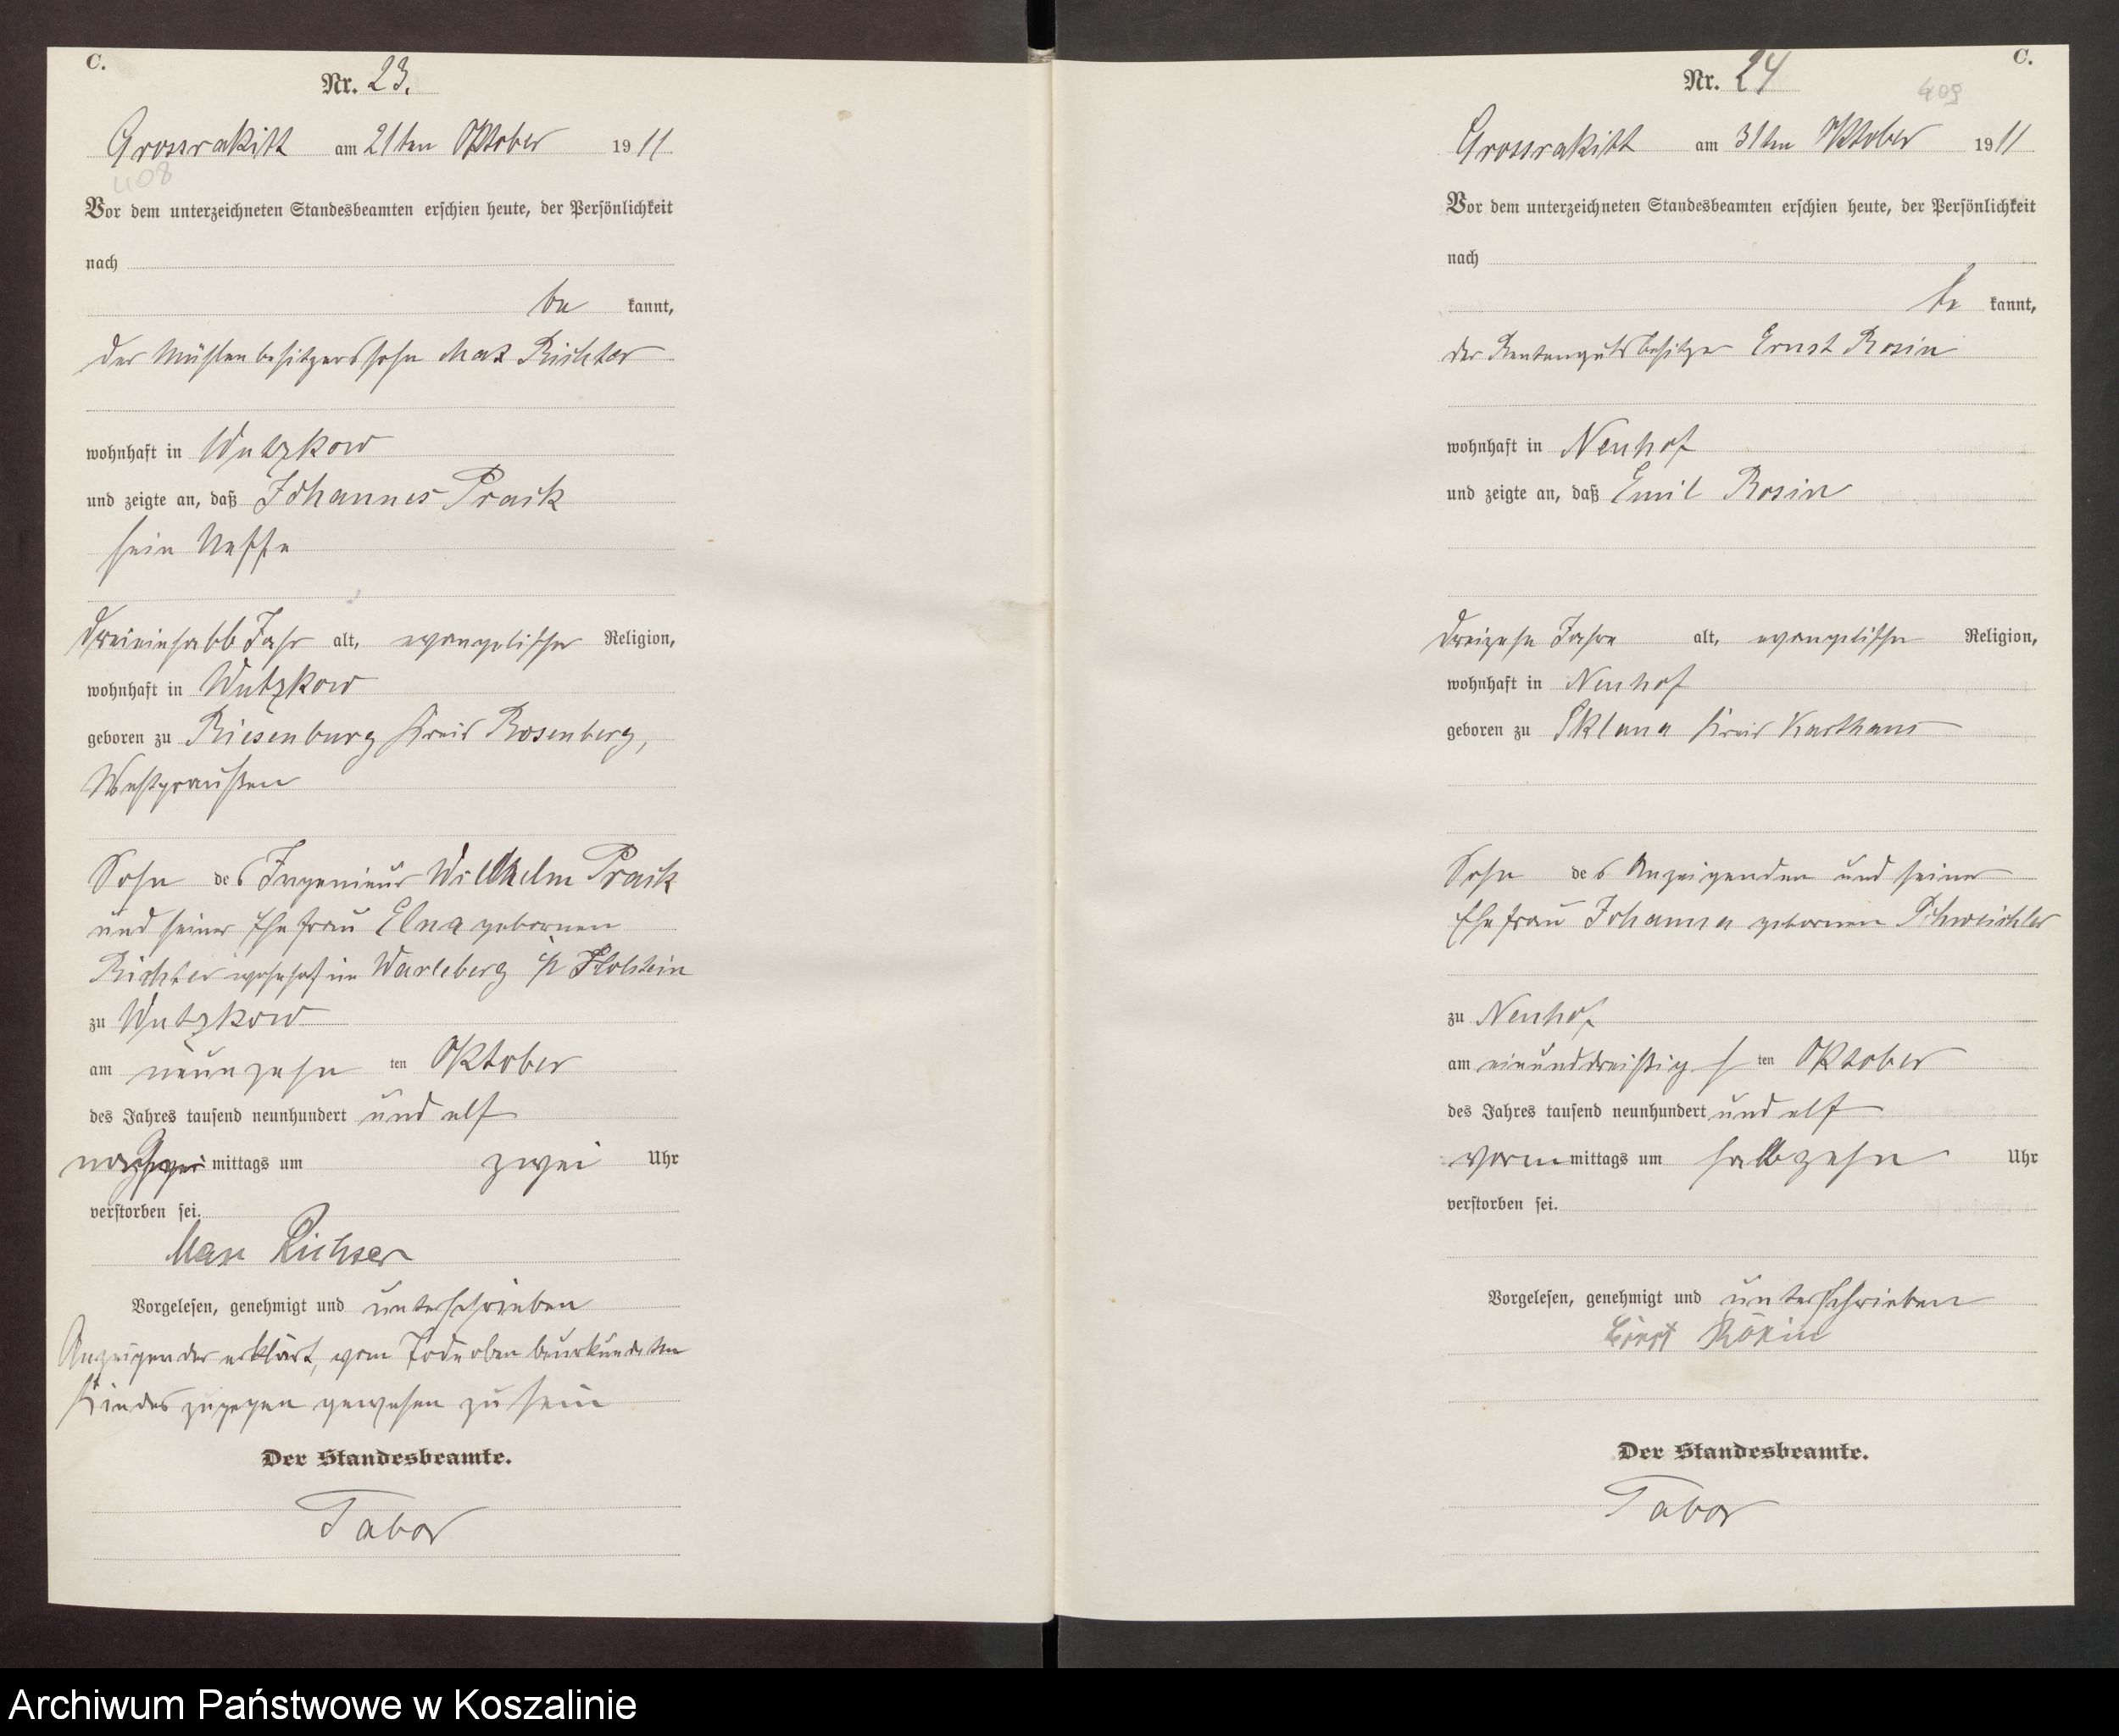 C.
Nr. 23.
Grossrakitt am 21ten Oktober 1911
408
Vor dem unterzeichneten Standesbeamten erschien heute, der Persönlichkeit
nach
be kannt,
der Mühlenbesitzerssohn Max Richter
wohnhaft in Wutzkow
und zeigte an, daß Johannes Prack
sein Neffe
dreieinhalb Jahr alt, evangelischer Religion,
wohnhaft in Wutzkow
geboren zu Riesenburg Kreis Rosenberg,
Westpreußen
Sohn des Ingenieur Wilhelm Prack
und seiner Ehefrau Elna gebornen
Richter wohnhaft in Warleberg i/ Holstein
zu Wutzkow
am neunzehn ten Oktober
des Jahres tausend neunhundert und elf
nach mittags um zwei Uhr
verstorben sei.
Max Richter
Vorgelesen, genehmigt und unterschrieben
Anzeigender erklärt, vom Tode oben beurkundeten
Kindes zugegen gewesen zu sein
Der Standesbeamte.
Tabor
C.
Nr. 24
409
Grossrakitt am 31ten Oktober 1911
Vor dem unterzeichneten Standesbeamten erschien heute, der Persönlichkeit
nach
be kannt,
der Rentengutsbesitzer Ernst Rosin
wohnhaft in Neuhof
und zeigte an, daß Emil Rosin
dreizehn Jahre alt, evangelischer Religion,
wohnhaft in Neuhof
geboren zu Sklana Kreis Karthaus
Sohn des Anzeigenden und seiner
Ehefrau Johanna gebornen Schweichler
zu Neuhof
am einunddreißig s ten Oktober
des Jahres tausend neunhundert und elf
vorm mittags um halbzehn Uhr
verstorben sei.
Vorgelesen, genehmigt und unterschrieben
Ernst Rosin
Der Standesbeamte.
Tabor
Archiwum Państwowe w Koszalinie